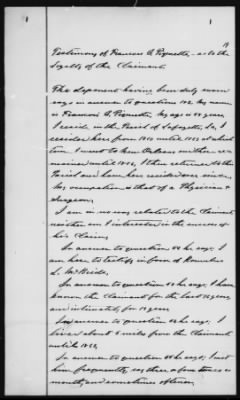 1
1
Testimony of Francois A. — as to the
Loyalty of the Claimant.
The deponent having been duly sworn
says in answer to questions 102. My name
is Francois A. my age is years,
I reside in the Parish of Lafayette, La, I
resided here from until at which
time I went to New Orleans where I re-
mained until I then returned to this
Parish and have here resided ever since,
My occupation is that of a Physician &
Surgeon,
I am in no way related to the Claimant
neither am I interested in the success of
his Claim,
In answer to question he says; I
am here to testify in favor of Romulus
L. McBride,
In answer to question he says, I have
known the Claimant for the last years,
and intimately for years
In answer to question he says, I
lived about miles from the Claimant
until
In answer to question he says; I met
him frequently, say three or four times a
month, and sometimes oftener,